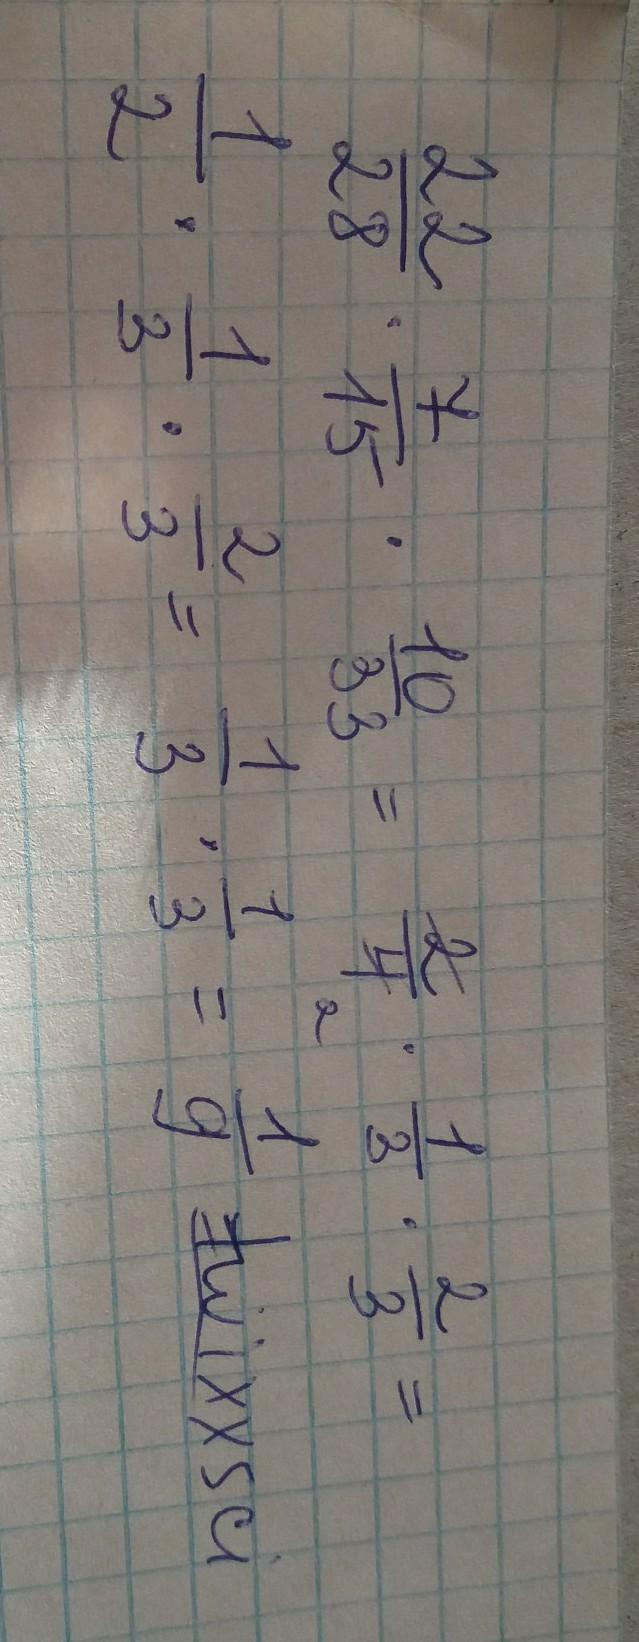 22/28 · 7/15 · 10/33 = 2/4 2 · 1/3 · 2/3 =
1/2 · 1/3 · 2/3 = 1/3 · 1/3 = 1/9 twixxsci